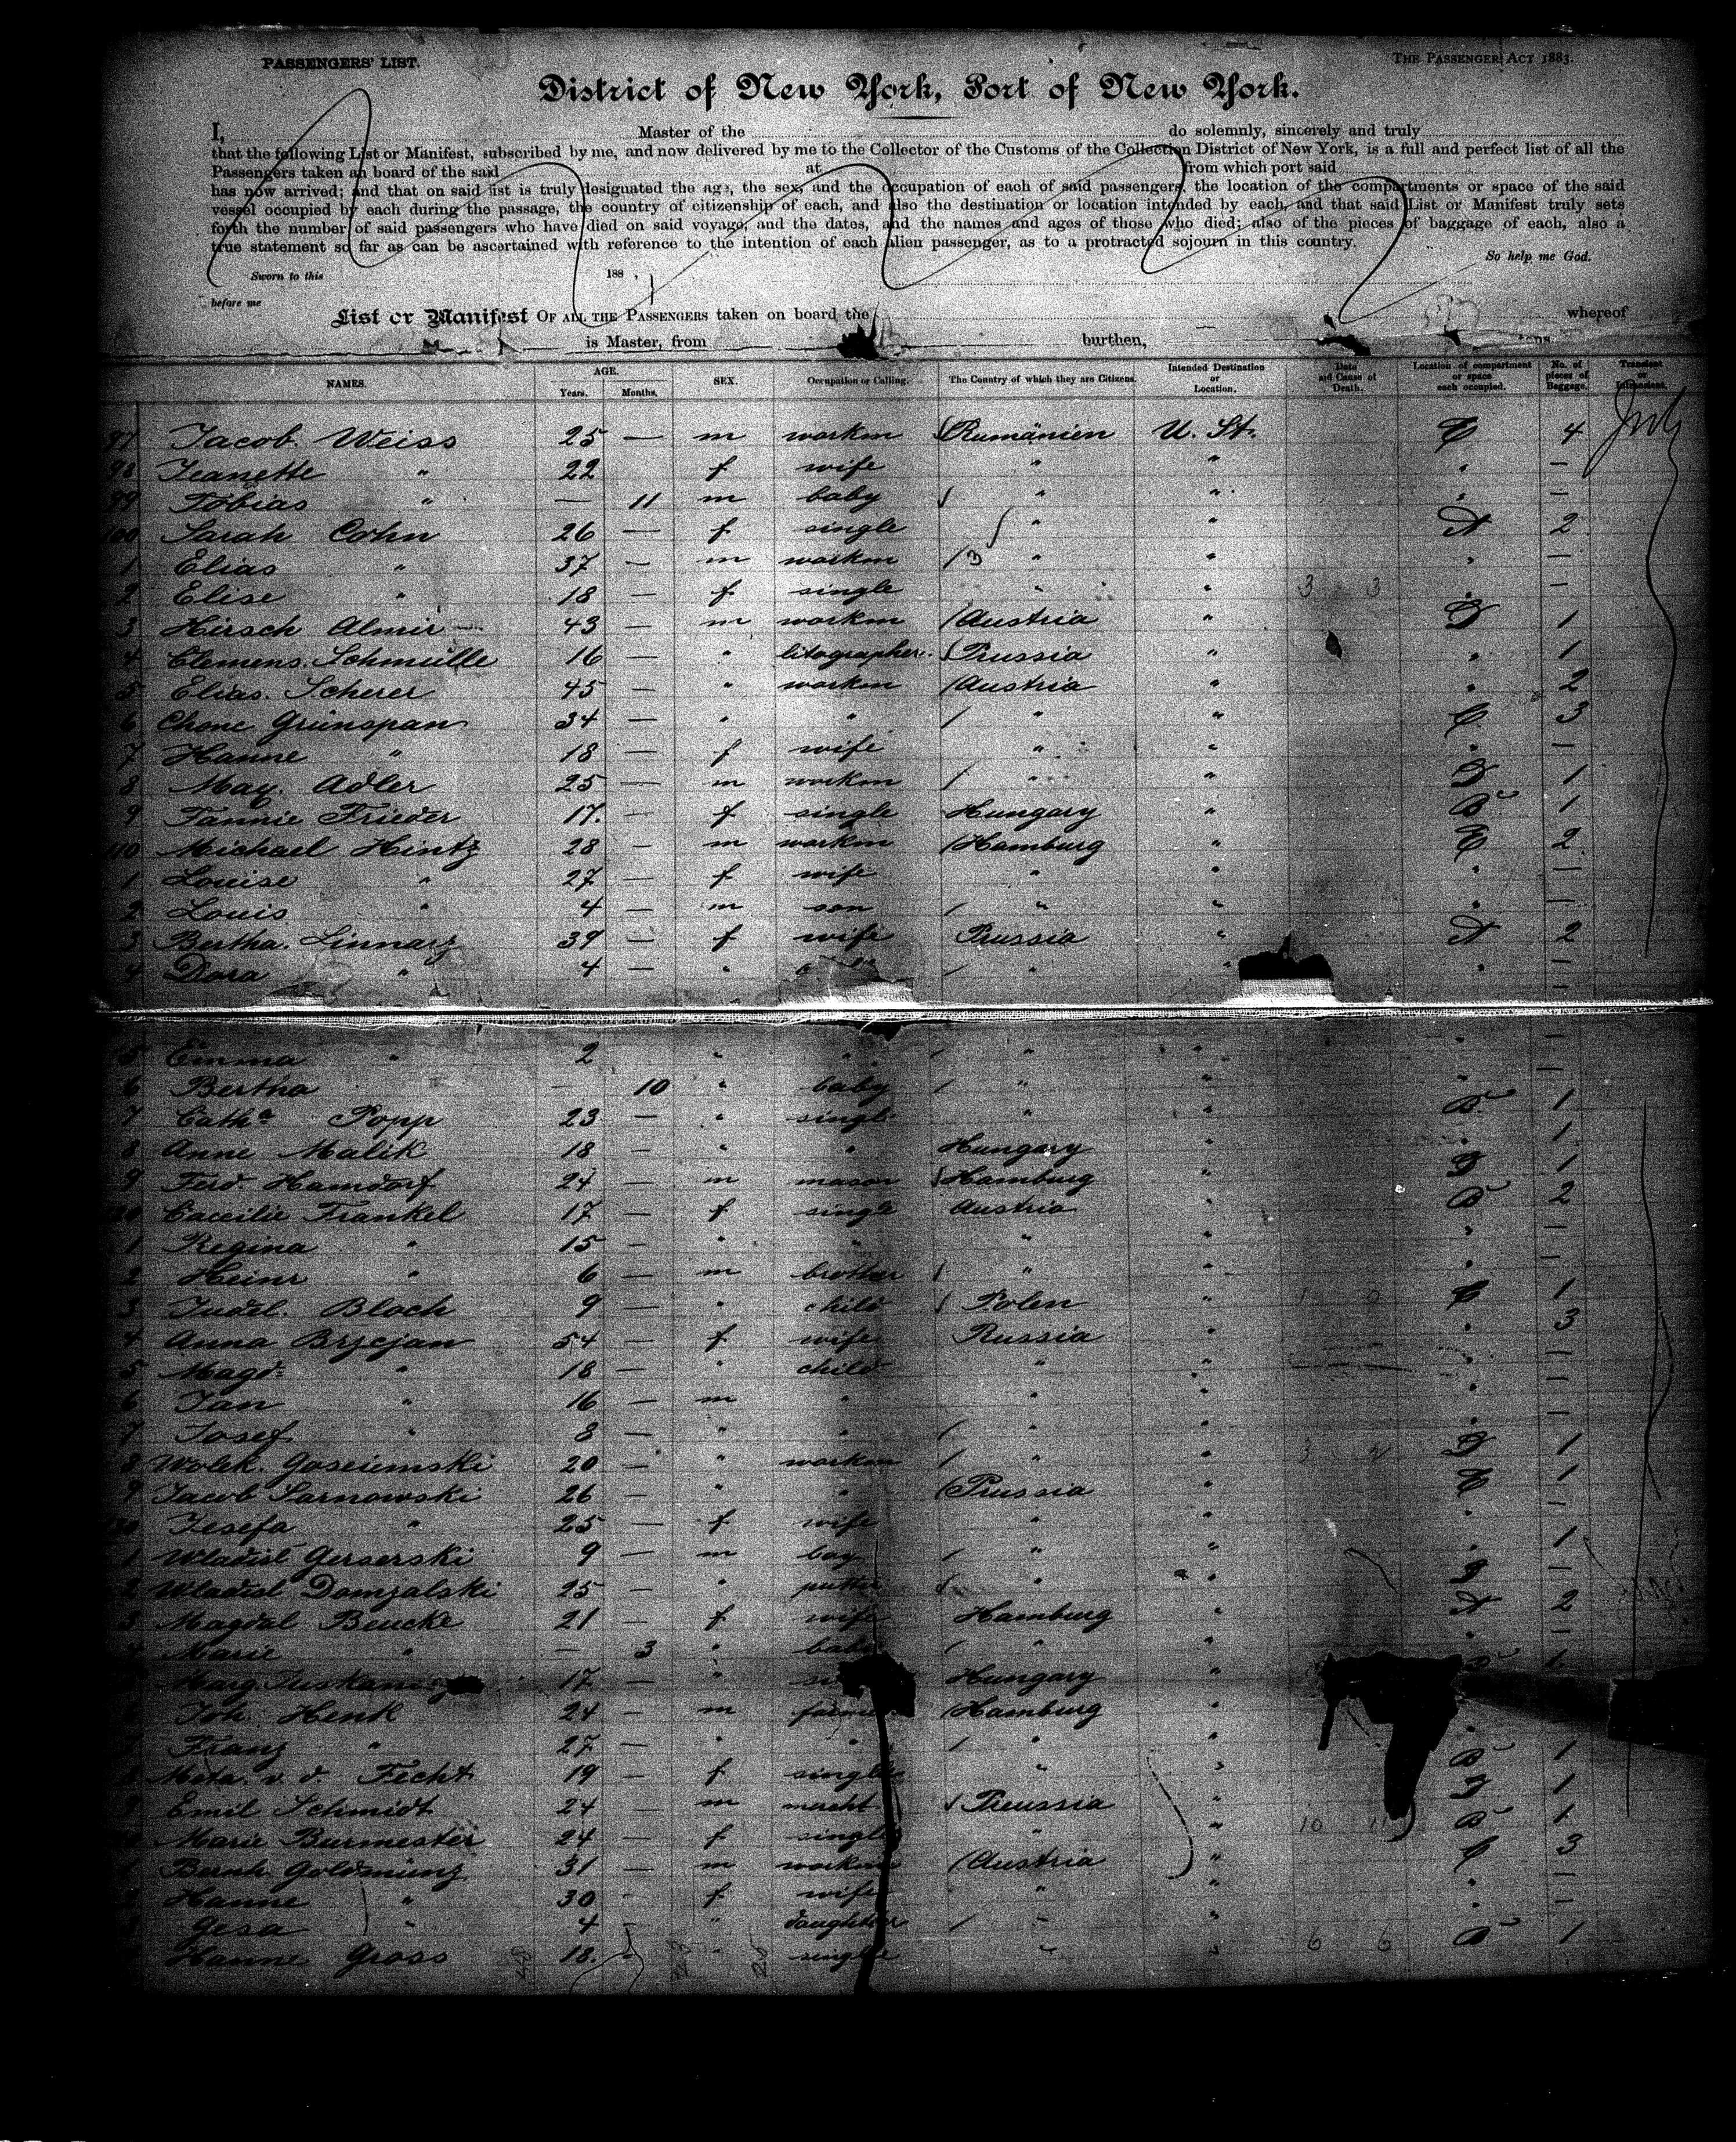 PASSENGERS' LIST.
THE PASSENGER ACT 1883.
District of New York, Port of New York.
I, Master of the do solemnly, sincerely and truly
that the following List or Manifest, subscribed by me, and now delivered by me to the Collector of the Customs of the Collection District of New York, is a full and perfect list of all the
Passengers taken an board of the said at from which port said
has now arrived; and that on said list is truly designated the age, the sex, and the occupation of each of said passengers, the location of the compartments or space of the said
vessel occupied by each during the passage, the country of citizenship of each, and also the destination or location intended by each, and that said List or Manifest truly sets
forth the number of said passengers who have died on said voyage, and the dates, and the names and ages of those who died; also of the pieces of baggage of each, also a
true statement so far as can be ascertained with reference to the intention of each alien passenger, as to a protracted sojourn in this country.
So help me God.
Sworn to this 188 ,
before me
List or Manifest OF ALL THE PASSENGERS taken on board the whereof
is Master, from burthen, tons.
NAMES. AGE. Years. Months. SEX. Occupation or Calling. The Country of which they are Citizens. Intended Destination or Location. Date and Cause of Death. Location of compartment or space each occupied. No. of pieces of Baggage. Transient or
97 Jacob Weiss 25 — m workm Rumänien U. St. C 4
98 Jeanette " 22 f wife " " " —
99 Tobias " — 11 m baby " " " —
100 Sarah Cohn 26 — f single " " A 2
1 Elias " 37 — m workm 13 " " " —
2 Elise " 18 — f single " " 3 3 " —
3 Hirsch Almir 43 — m workm Austria " D 1
4 Clemens Schmülle 16 — " litographer. Prussia " " 1
5 Elias Scherer 45 — " workm Austria " " 2
6 Chone Grünspan 34 — " " " " C 3
7 Hanne " 18 — f wife " " " —
8 Max Adler 25 — m workm " " D 1
9 Fannie Frieder 17. — f single Hungary " B 1
110 Michael Hintz 28 — m workm Hamburg " E 2
1 Louise " 27 — f wife " " " —
2 Louis " 4 — m son " " " —
3 Bertha Linnarz 39 — f wife Prussia " A 2
4 Dora " 4 — " " " " —
5 Emma " 2 " " " " " —
6 Bertha — 10 " baby " " " —
7 Catha Popp 23 — " single " " B 1
8 Anne Malik 18 — " " Hungary " " 1
9 Ferd Hamdorf 24 — m mason Hamburg " D 1
120 Caecilie Frankel 17 — f single Austria " B 2
1 Regina " 15 — " " " " " —
2 Heinr " 6 — m brother " " " —
3 Judel. Bloch 9 — " child Polen " 1 0 C 1
4 Anna Brzejan 54 — f wife Russia " " 3
5 Magd. " 18 — " child " " " —
6 Jan " 16 — m " " " " —
7 Josef " 8 — " " " " " —
8 Wolek. Gaseiemski 20 — " workm " " 3 2 D 1
9 Jacob Sarnowski 26 — " " Prussia " E 1
130 Josefa " 25 — f wife " " " —
1 Wladisl Gerserski 9 — m boy " " " 1
2 Wladisl Domzalski 25 — " " " D
3 Magdal Beucke 21 — f wife Hamburg " A 2
4 Marie " — 3 " baby " " " —
Marg 17 — " Hungary " B 1
Joh. Henk 24 — m farmer Hamburg "
Franz " 27 — " " " " "
Meta. v. d. Fecht 19 — f single " " B 1
9 Emil Schmidt 24 — m mercht. Preussia " D 1
Marie Burmester 24 — f single " " 10 11 B 1
1 Berah Goldmünz 31 — m workm Austria " C 3
Hanne " 30 - f wife " " " —
Gesa " 4 - " daughter " " " —
Hanne Gross 18. " single " " 6 6 B 1